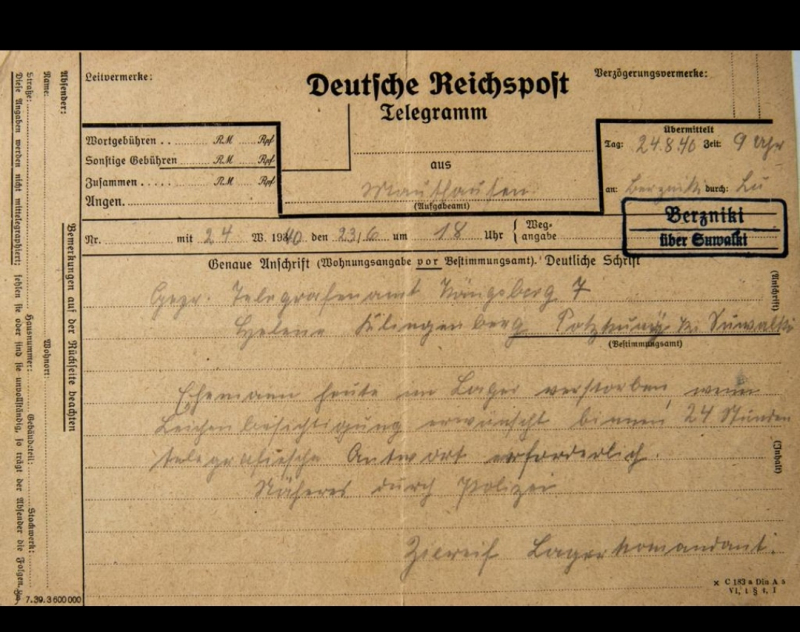 Leitvermerke:
Deutsche Reichspost
Telegramm
Verzögerungsvermerke:
Wortgebühren . . ...... RM ...... Rpf
Sonstige Gebühren ...... RM ...... Rpf
Zusammen . . . . . ...... RM ...... Rpf
Angen.
aus
Mauthausen
(Aufgabeamt)
Übermittelt
Tag: 24.8.40 Zeit: 9 Uhr
an: Berzniki durch: Lu
Berzniki
über Suwalki
Nr. mit 24 W. 1940 den 23/6 um 18 Uhr { Weg-
angabe
Genaue Anschrift (Wohnungsangabe vor Bestimmungsamt). Deutsche Schrift
(Anschrift)
Telegrafenamt Königsberg 7
Helene Klingenberg Suwalki
(Bestimmungsamt)
Ehemann heute im Lager verstorben wenn
Leichenbesichtigung erwünscht binnen 24 Stunden
telegrafische Antwort erforderlich.
Näheres durch Polizei
(Inhalt)
Ziereis Lagerkomandant.
x C 183 a Din A 5
VI, 1 § 1, 1
Absender:
Name:
Wohnort:
Straße: Hausnummer: Gebäudeteil: Stockwerk:
Diese Angaben werden nicht mittelegraphiert; fehlen sie oder sind sie unvollständig, so trägt der Absender die Folgen.
Bemerkungen auf der Rückseite beachten
7.39. 3 600 000